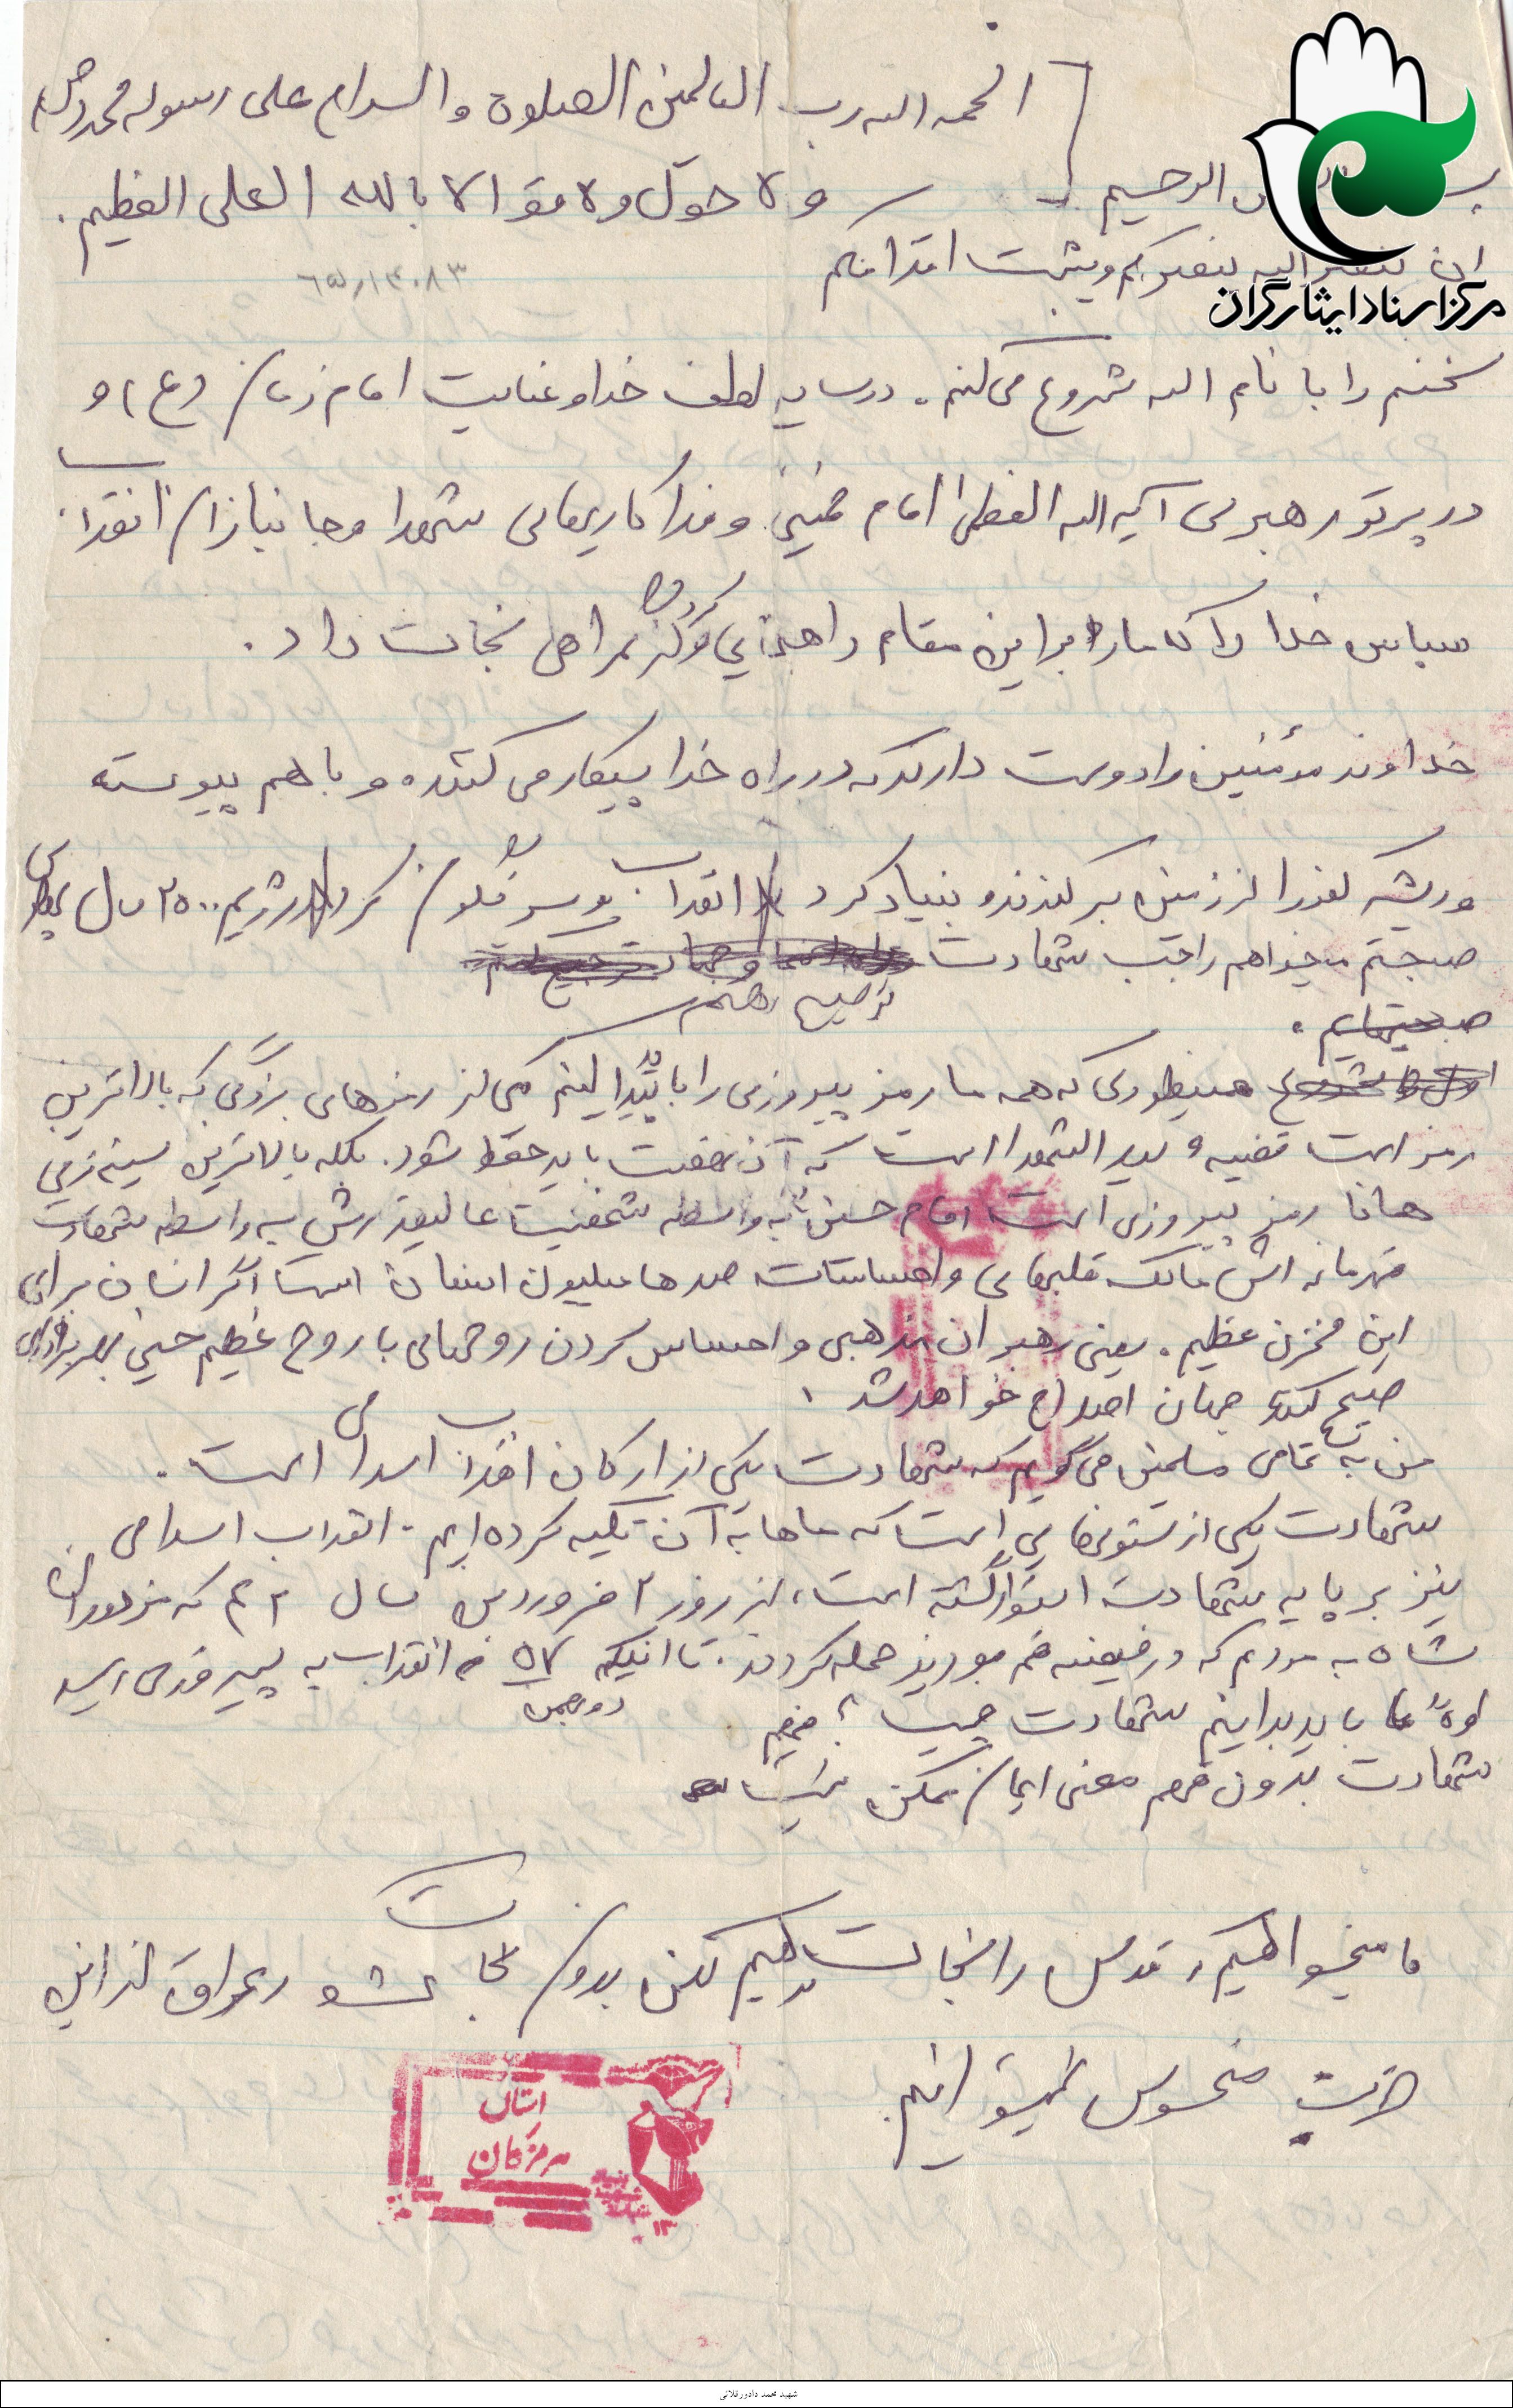 الحمد الله رب العالمین الصلوة والسلام علی رسوله محمد (ص)
الرحیم
ولا حول ولا قوة الا بالله العلی العظیم.
ان تنصر الله ینصرکم ویثبت اقدامکم
مرکز اسناد ایثارگران
سخنم را با نام الله شروع می کنم. در سایه لطف خدا و عنایت امام زمان (ع) و
در پرتو رهبری آیه الله العظمی امام خمینی و فدا کاریهای شهدا و جانبازان انقلاب
سپاس خدا را که ما را بر این مقام راهنمایی کرد و از گمراهی نجات داد.
خداوند مؤمنین را دوست دارد که در راه خدا پیکار می کنند و با هم پیوسته
و ریشه کفر را از زمین برکندند و بنیاد کرد انقلاب و سرنگون کرد رژیم ۲۵۰۰ سال
صحبتم میخواهم راجب شهادت
توضیح دهم
همینطوری که همه ما رمز پیروزی را با پیدا کنیم یکی از رمزهای بزرگی که بالاترین
رمز است قضیه سید الشهدا است که آن نهضت باید حفظ شود. بلکه بالاترین سینه زنی
همانا رمز پیروزی است امام حسین به واسطه شخصیت عالیقدرش به واسطه شهادت
قهرمانه اش مالک قلبهای و احساسات صدها میلیون انسان است اگر انسان برای
این مخزن عظیم. یعنی رهبران مذهبی و احساس کردن روحهایی با روح عظیم حسینی بهره برداری
صحیح کنند جهان اصلاح خواهد شد.
من به تمامی مسلمین می گویم که شهادت یکی از ارکان انقلاب اسلامی است.
شهادت یکی از ستونهایی است که ماها به آن تکیه کرده ایم. انقلاب اسلامی
نیز بر پایه شهادت استوار گشته است، از روز ۲ فروردین سال ۴۲ که مزدوران
شاه به مردم که در فیضیه قم بودند حمله کردند. تا اینکه ۵۷ که انقلاب به پیروزی رسید
در بهمن
اولا ما باید بدانیم شهادت چیست؟
شهادت بدون فهم معنی ایمان ممکن نیست
ما میخواهیم قدس را نجات بدهیم لکن بدون نجات کشور عراق از این
حزب منحوس نمیتوانیم.
استان
هرمزگان
شهید محمد دادور قلاتی